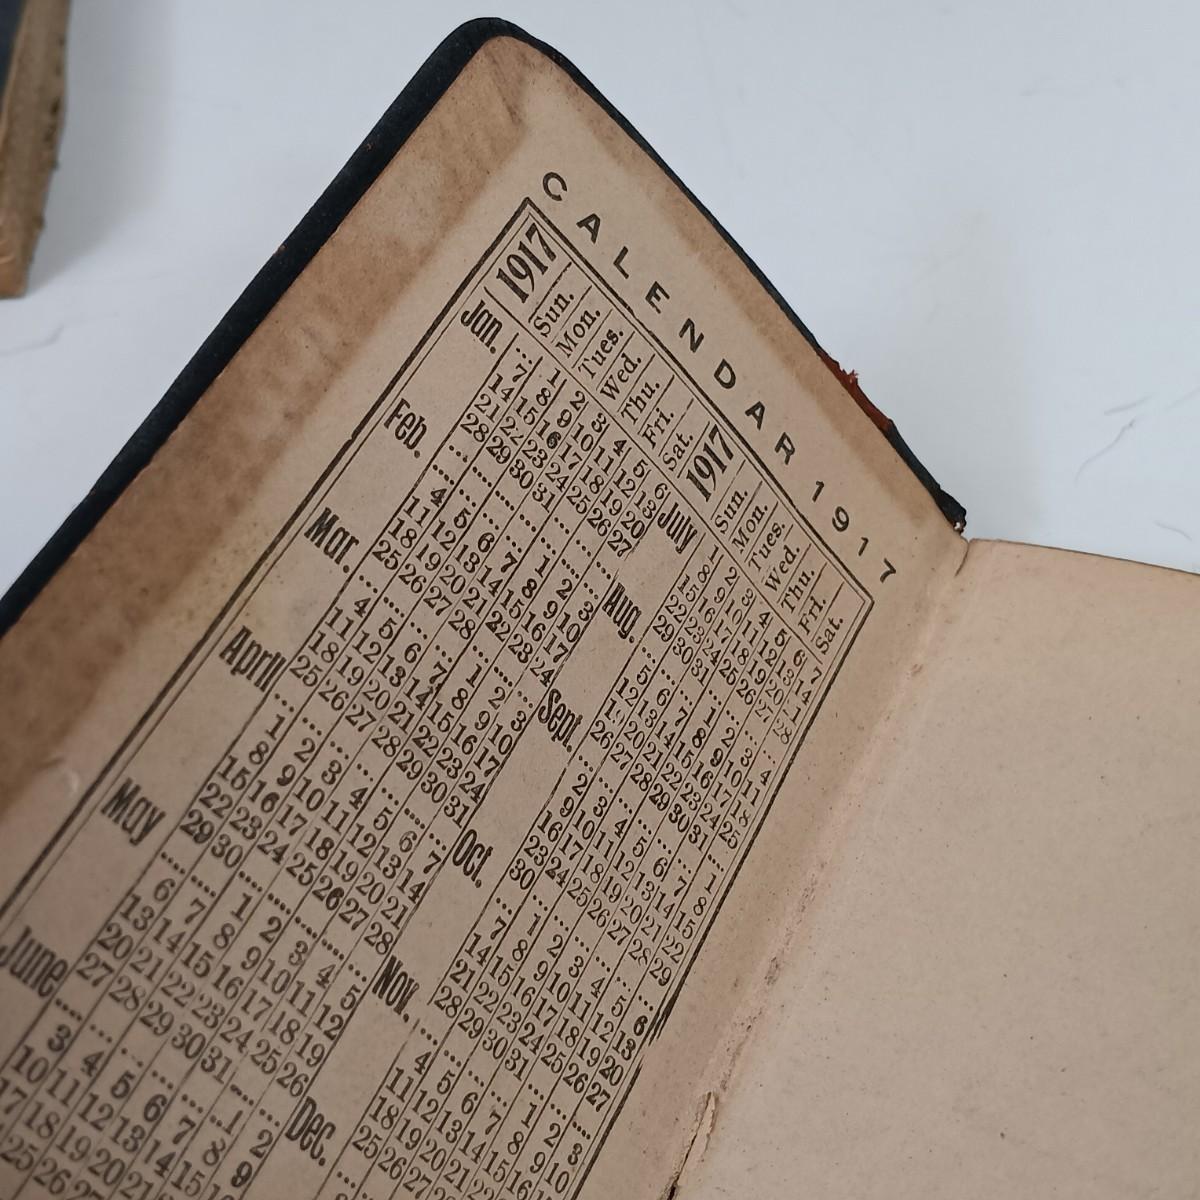 CALENDAR 1917
1917 Sun. Mon. Tues. Wed. Thu. Fri. Sat.
Jan. ... 1 2 3 4 5 6
7 8 9 10 11 12 13
14 15 16 17 18 19 20
21 22 23 24 25 26 27
28 29 30 31 ... ... ...
Feb. ... ... ... ... 1 2 3
4 5 6 7 8 9 10
11 12 13 14 15 16 17
18 19 20 21 22 23 24
25 26 27 28
Mar. ... ... ... ... 1 2 3
4 5 6 7 8 9 10
11 12 13 14 15 16 17
18 19 20 21 22 23 24
25 26 27 28 29 30 31
April ... ... ... ... ... ... ...
1 2 3 4 5 6 7
8 9 10 11 12 13 14
15 16 17 18 19 20 21
22 23 24 25 26 27 28
29 30 ... ... ... ... ...
May ... ... 1 2 3 4 5
6 7 8 9 10 11 12
13 14 15 16 17 18 19
20 21 22 23 24 25 26
27 28 29 30 31 ... ...
June ... ... ... ... ... 1 2
3 4 5 6 7 8 9
10 11 12 13 14 15
17 18 19 20 21
25 26 27
1917 Sun. Mon. Tues. Wed. Thu. Fri. Sat.
July 1 2 3 4 5 6 7
8 9 10 11 12 13 14
15 16 17 18 19 20 21
22 23 24 25 26 27 28
29 30 31 ... ... ... ...
Aug. ... ... ... 1 2 3 4
5 6 7 8 9 10 11
12 13 14 15 16 17 18
19 20 21 22 23 24 25
26 27 28 29 30 31 ...
Sept. ... ... ... ... ... ... 1
2 3 4 5 6 7 8
9 10 11 12 13 14 15
16 17 18 19 20 21 22
23 24 25 26 27 28 29
30
Oct. ... 1 2 3 4 5 6
7 8 9 10 11 12 13
14 15 16 17 18 19 20
21 22 23 24 25 26 27
28 29 30 31 ... ... ...
Nov. ... ... ... ... 1 2 3
4 5 6 7 8 9 10
11 12 13 14 15 16
18 19 20 21 22
25 26 27 28
Dec. ...